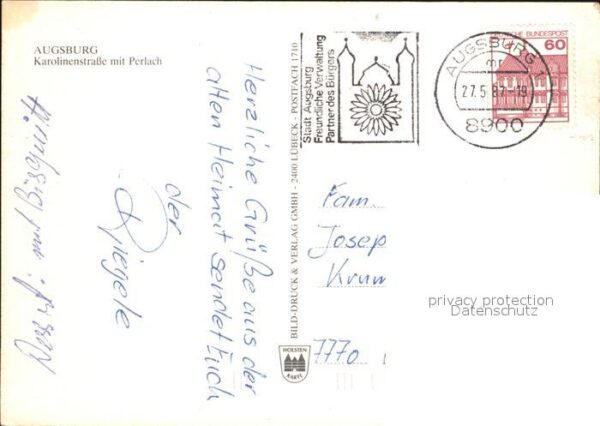 AUGSBURG
Karolinenstraße mit Perlach
Herzliche Grüße aus der
alten Heimat sendet Euch
der
BILD-DRUCK & VERLAG GMBH - 2400 LÜBECK - POSTFACH 1710
HOLSTEN
KARTE
Stadt Augsburg
Freundliche Verwaltung
Partner des Bürgers
AUGSBURG 1
mr
27.5.87-19
8900
DEUTSCHE BUNDESPOST
60
Fam.
Josep
Krum
7770
privacy protection
Datenschutz